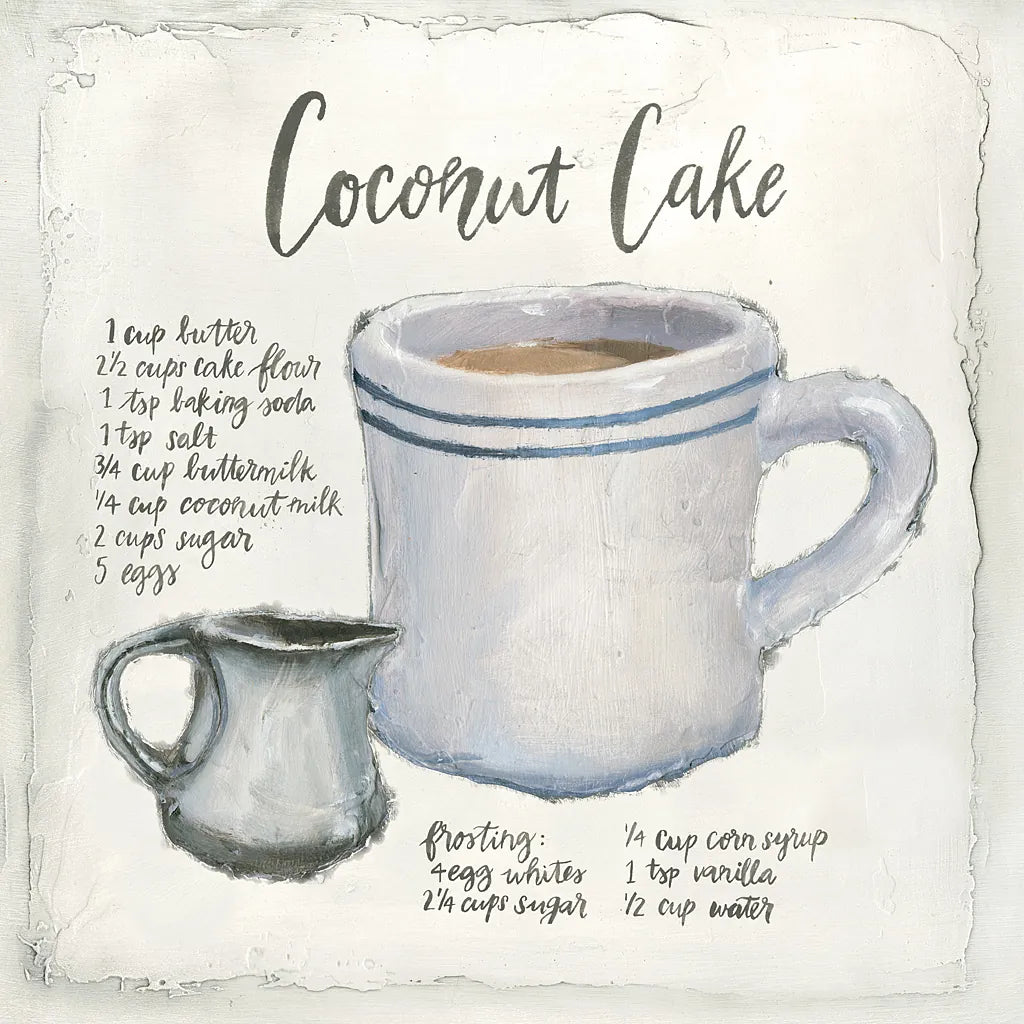 Coconut Cake
1 cup butter
2½ cups cake flour
1 tsp baking soda
1 tsp salt
3/4 cup buttermilk
1/4 cup coconut milk
2 cups sugar
5 eggs
frosting:
4 egg whites
2¼ cups sugar
1/4 cup corn syrup
1 tsp vanilla
1/2 cup water